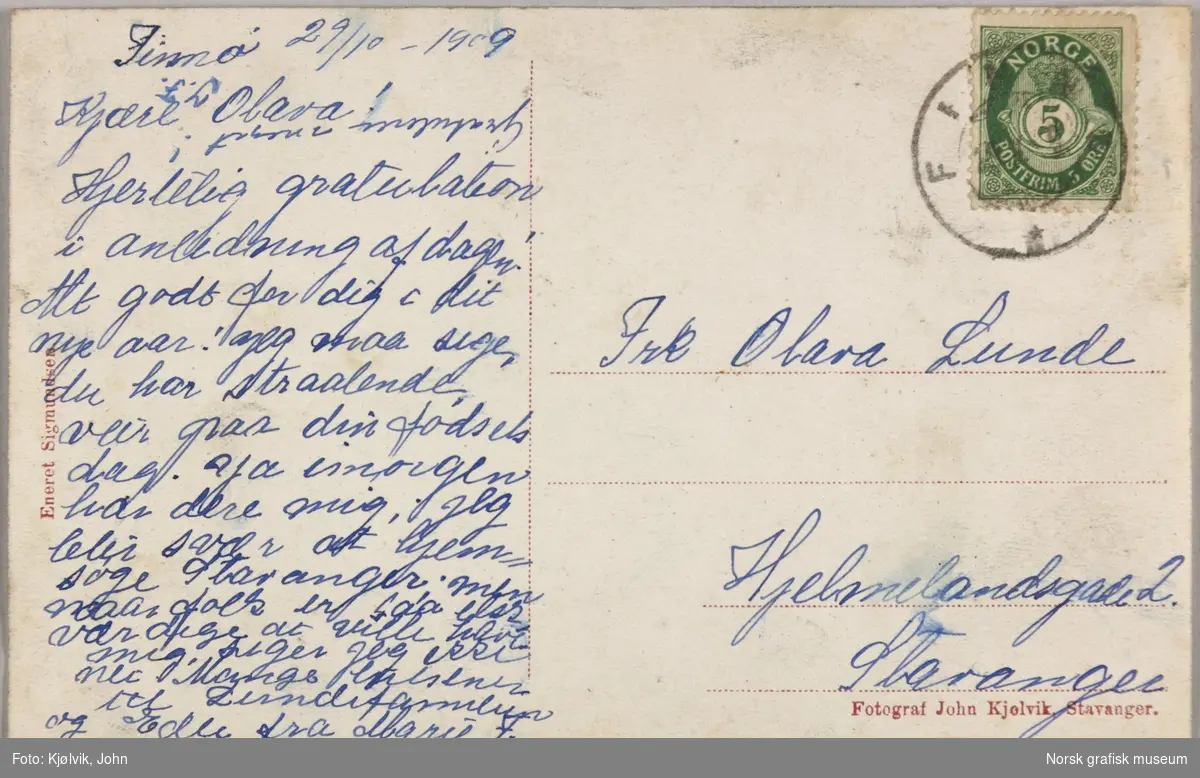 Finnø 29/10 - 1909
Kjære Olava!
Hjertelig gratulation
i anledning af dagen!
Alt godt for dig i dit
nye aar! Jeg maa sige,
du har straalende
veir paa din fødsels
dag. Ja imorgen
har dere mig, jeg
bleir svær at hjem=
søge Stavanger. men
naar folk er saa elsk
værdige at ville have
mig, siger jeg ikke
nei. Mange hilsener
til Lundefamilien
og Eder fra Marie F.
NORGE
5
POSTFRIM 5 ØRE
Frk Olava Lunde
Hjelmelandsgade 2.
Stavanger
Eneret Sigmundsen
Fotograf John Kjølvik, Stavanger.
Foto: Kjølvik, John
Norsk grafisk museum